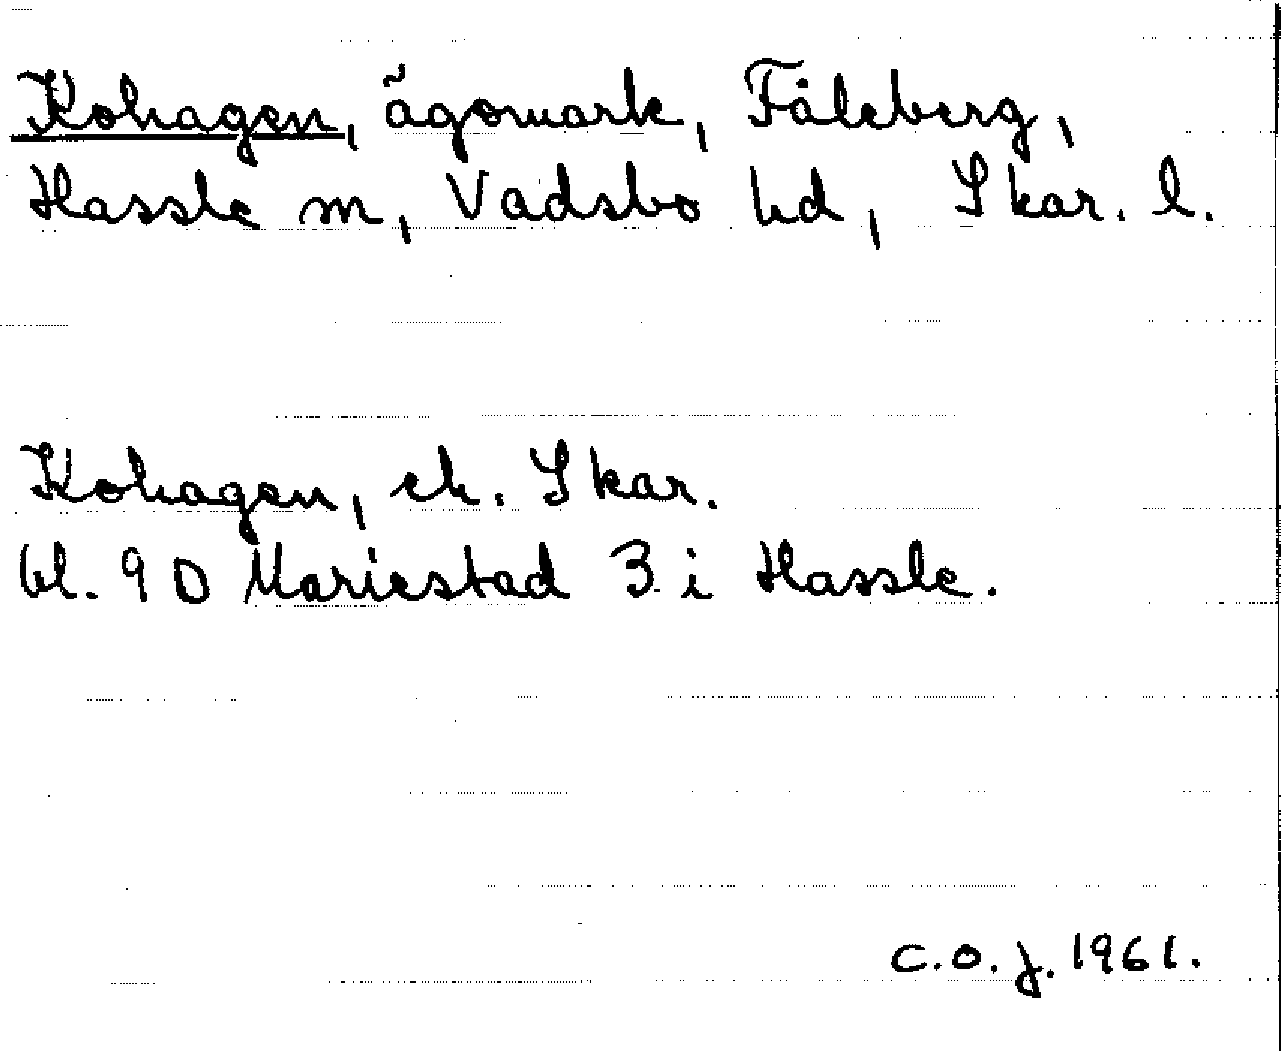 Kohagen, ägomark, Fåleberg,
Hassle sn, Vadsbo hd, Skar. l.
Kohagen, ek. Skar.
bl. 9 D Mariestad 3 i Hassle.
C.O.J. 1961.